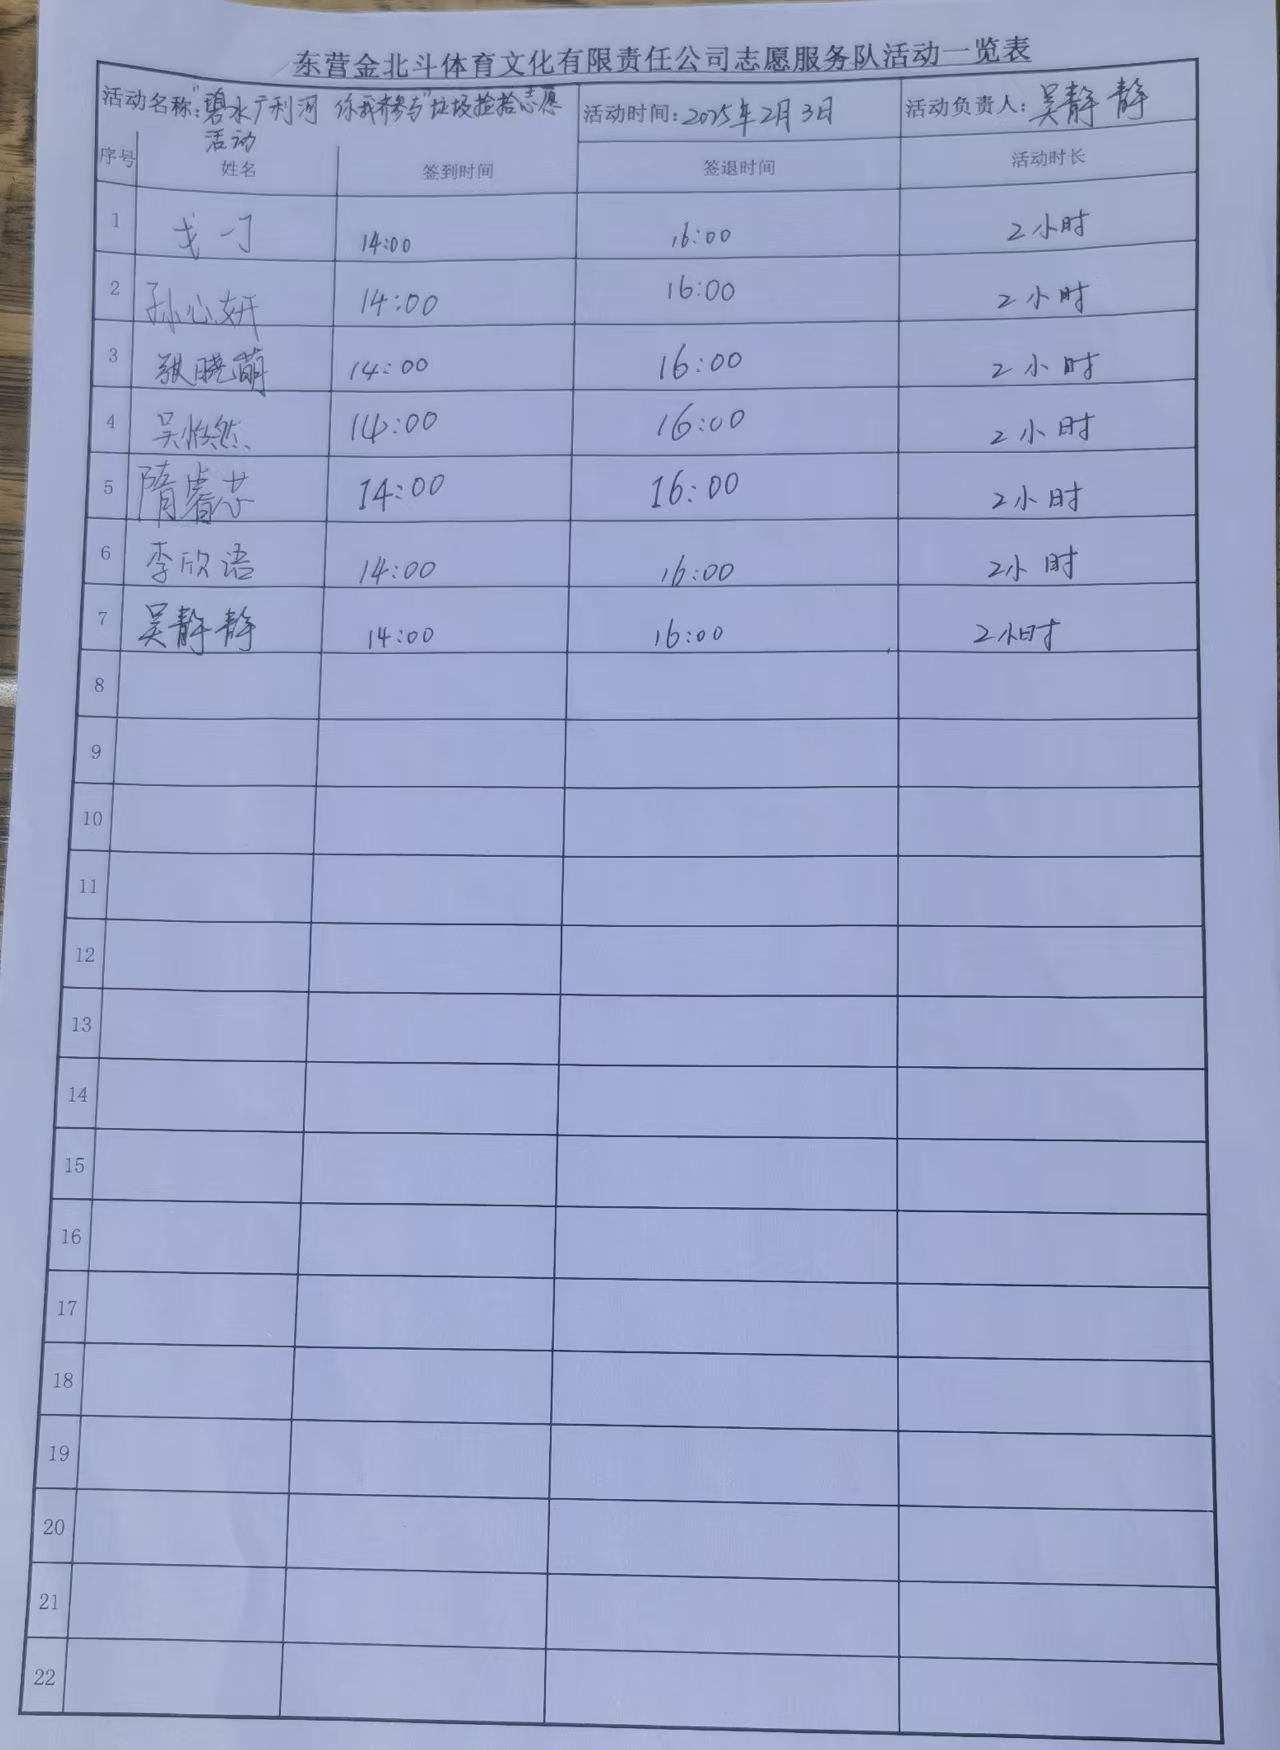 东营金北斗体育文化有限责任公司志愿服务队活动一览表
活动名称:"碧水广利河 你我齐参与"垃圾捡拾志愿活动 活动时间:2025年2月3日 活动负责人:吴静静
序号 姓名 签到时间 签退时间 活动时长
1 14:00 16:00 2小时
2 孙心妍 14:00 16:00 2小时
3 张晓萌 14:00 16:00 2小时
4 吴悠然 14:00 16:00 2小时
5 隋睿芯 14:00 16:00 2小时
6 李欣语 14:00 16:00 2小时
7 吴静静 14:00 16:00 2小时
8
9
10
11
12
13
14
15
16
17
18
19
20
21
22